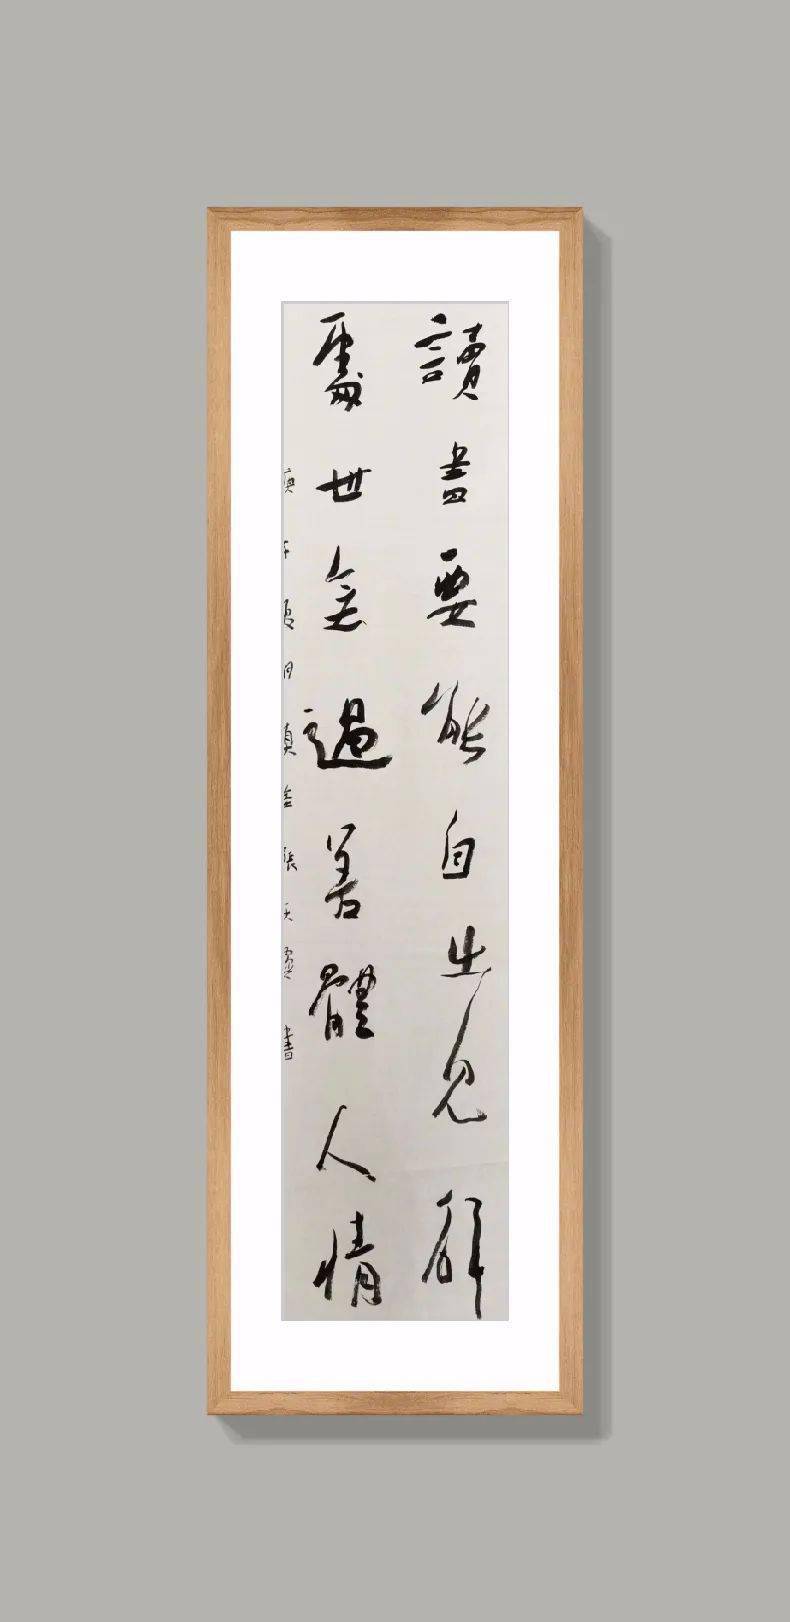 讀書要能自出見解
處世無過善體人情
庚子夏月張天書